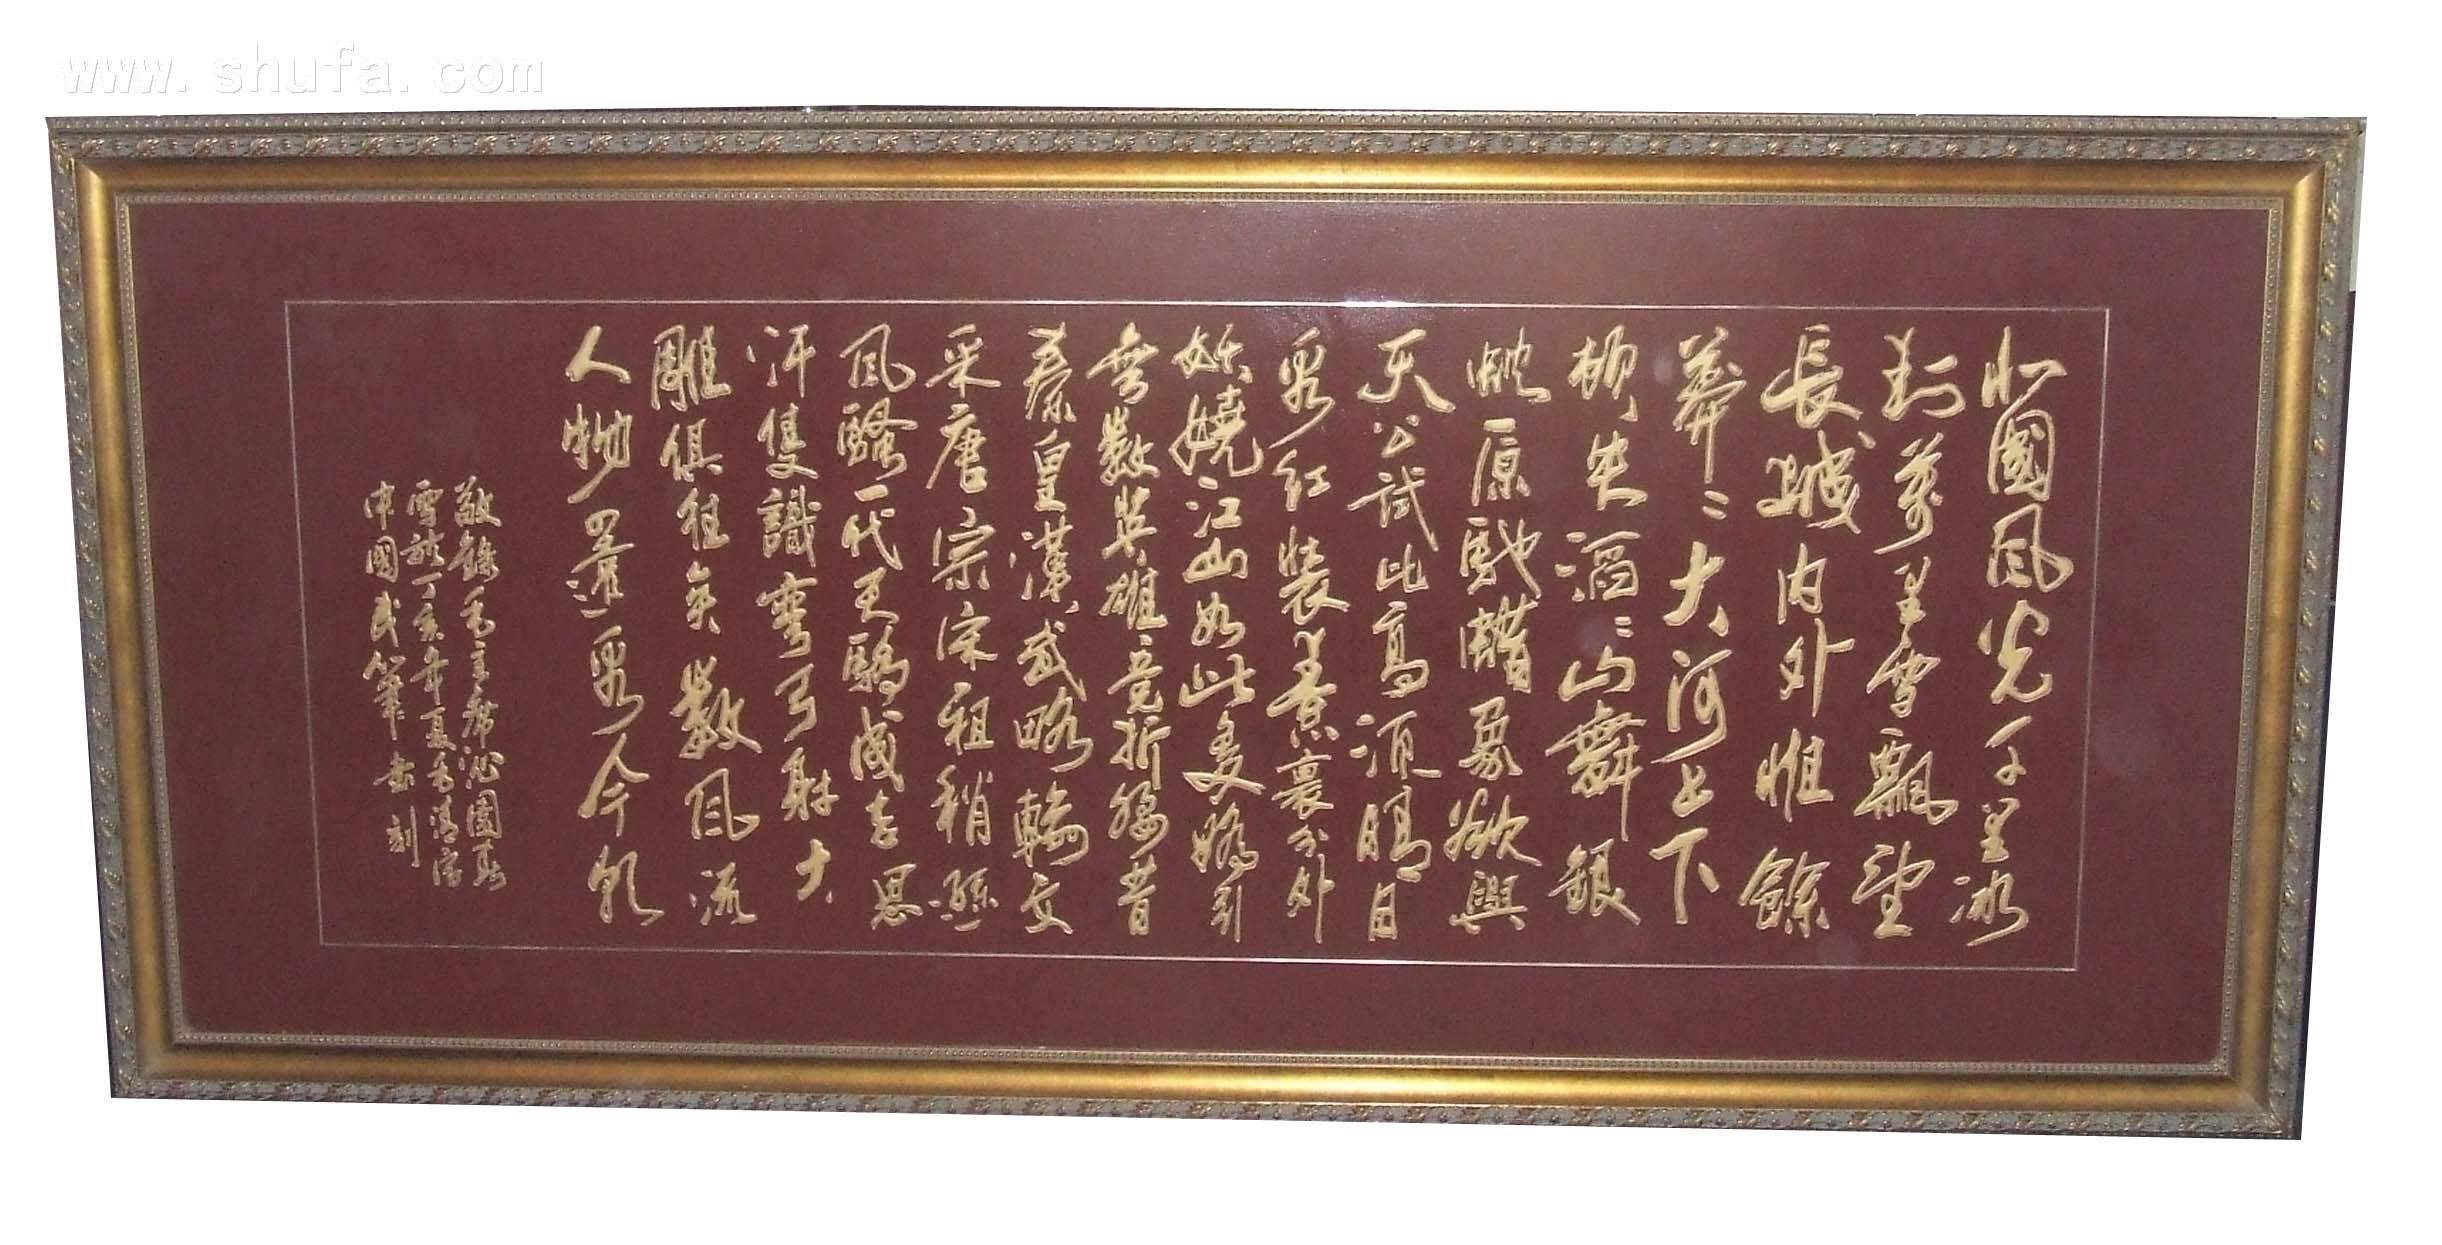 www.shufa.com
北國風光千里冰
封萬里雪飄望
長城內外惟餘
莽〻大河上下
頓失滔〻山舞銀
蛇原馳蠟象欲與
天公試比高須晴日
看紅裝素裹分外
妖嬈江山如此多嬌引
無數英雄竞折腰昔
秦皇漢武略輸文
采唐宗宋祖稍遜
風騷一代天驕成吉思
汗隻識彎弓射大
雕俱往矣數風流
人物還看今朝
敬錄毛主席沁園春
雪於丁亥年夏毛
中國 筆書刻